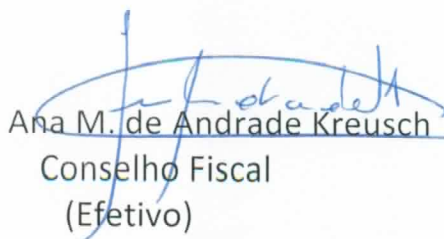 Ana M. de Andrade Kreusch
Conselho Fiscal
(Efetivo)